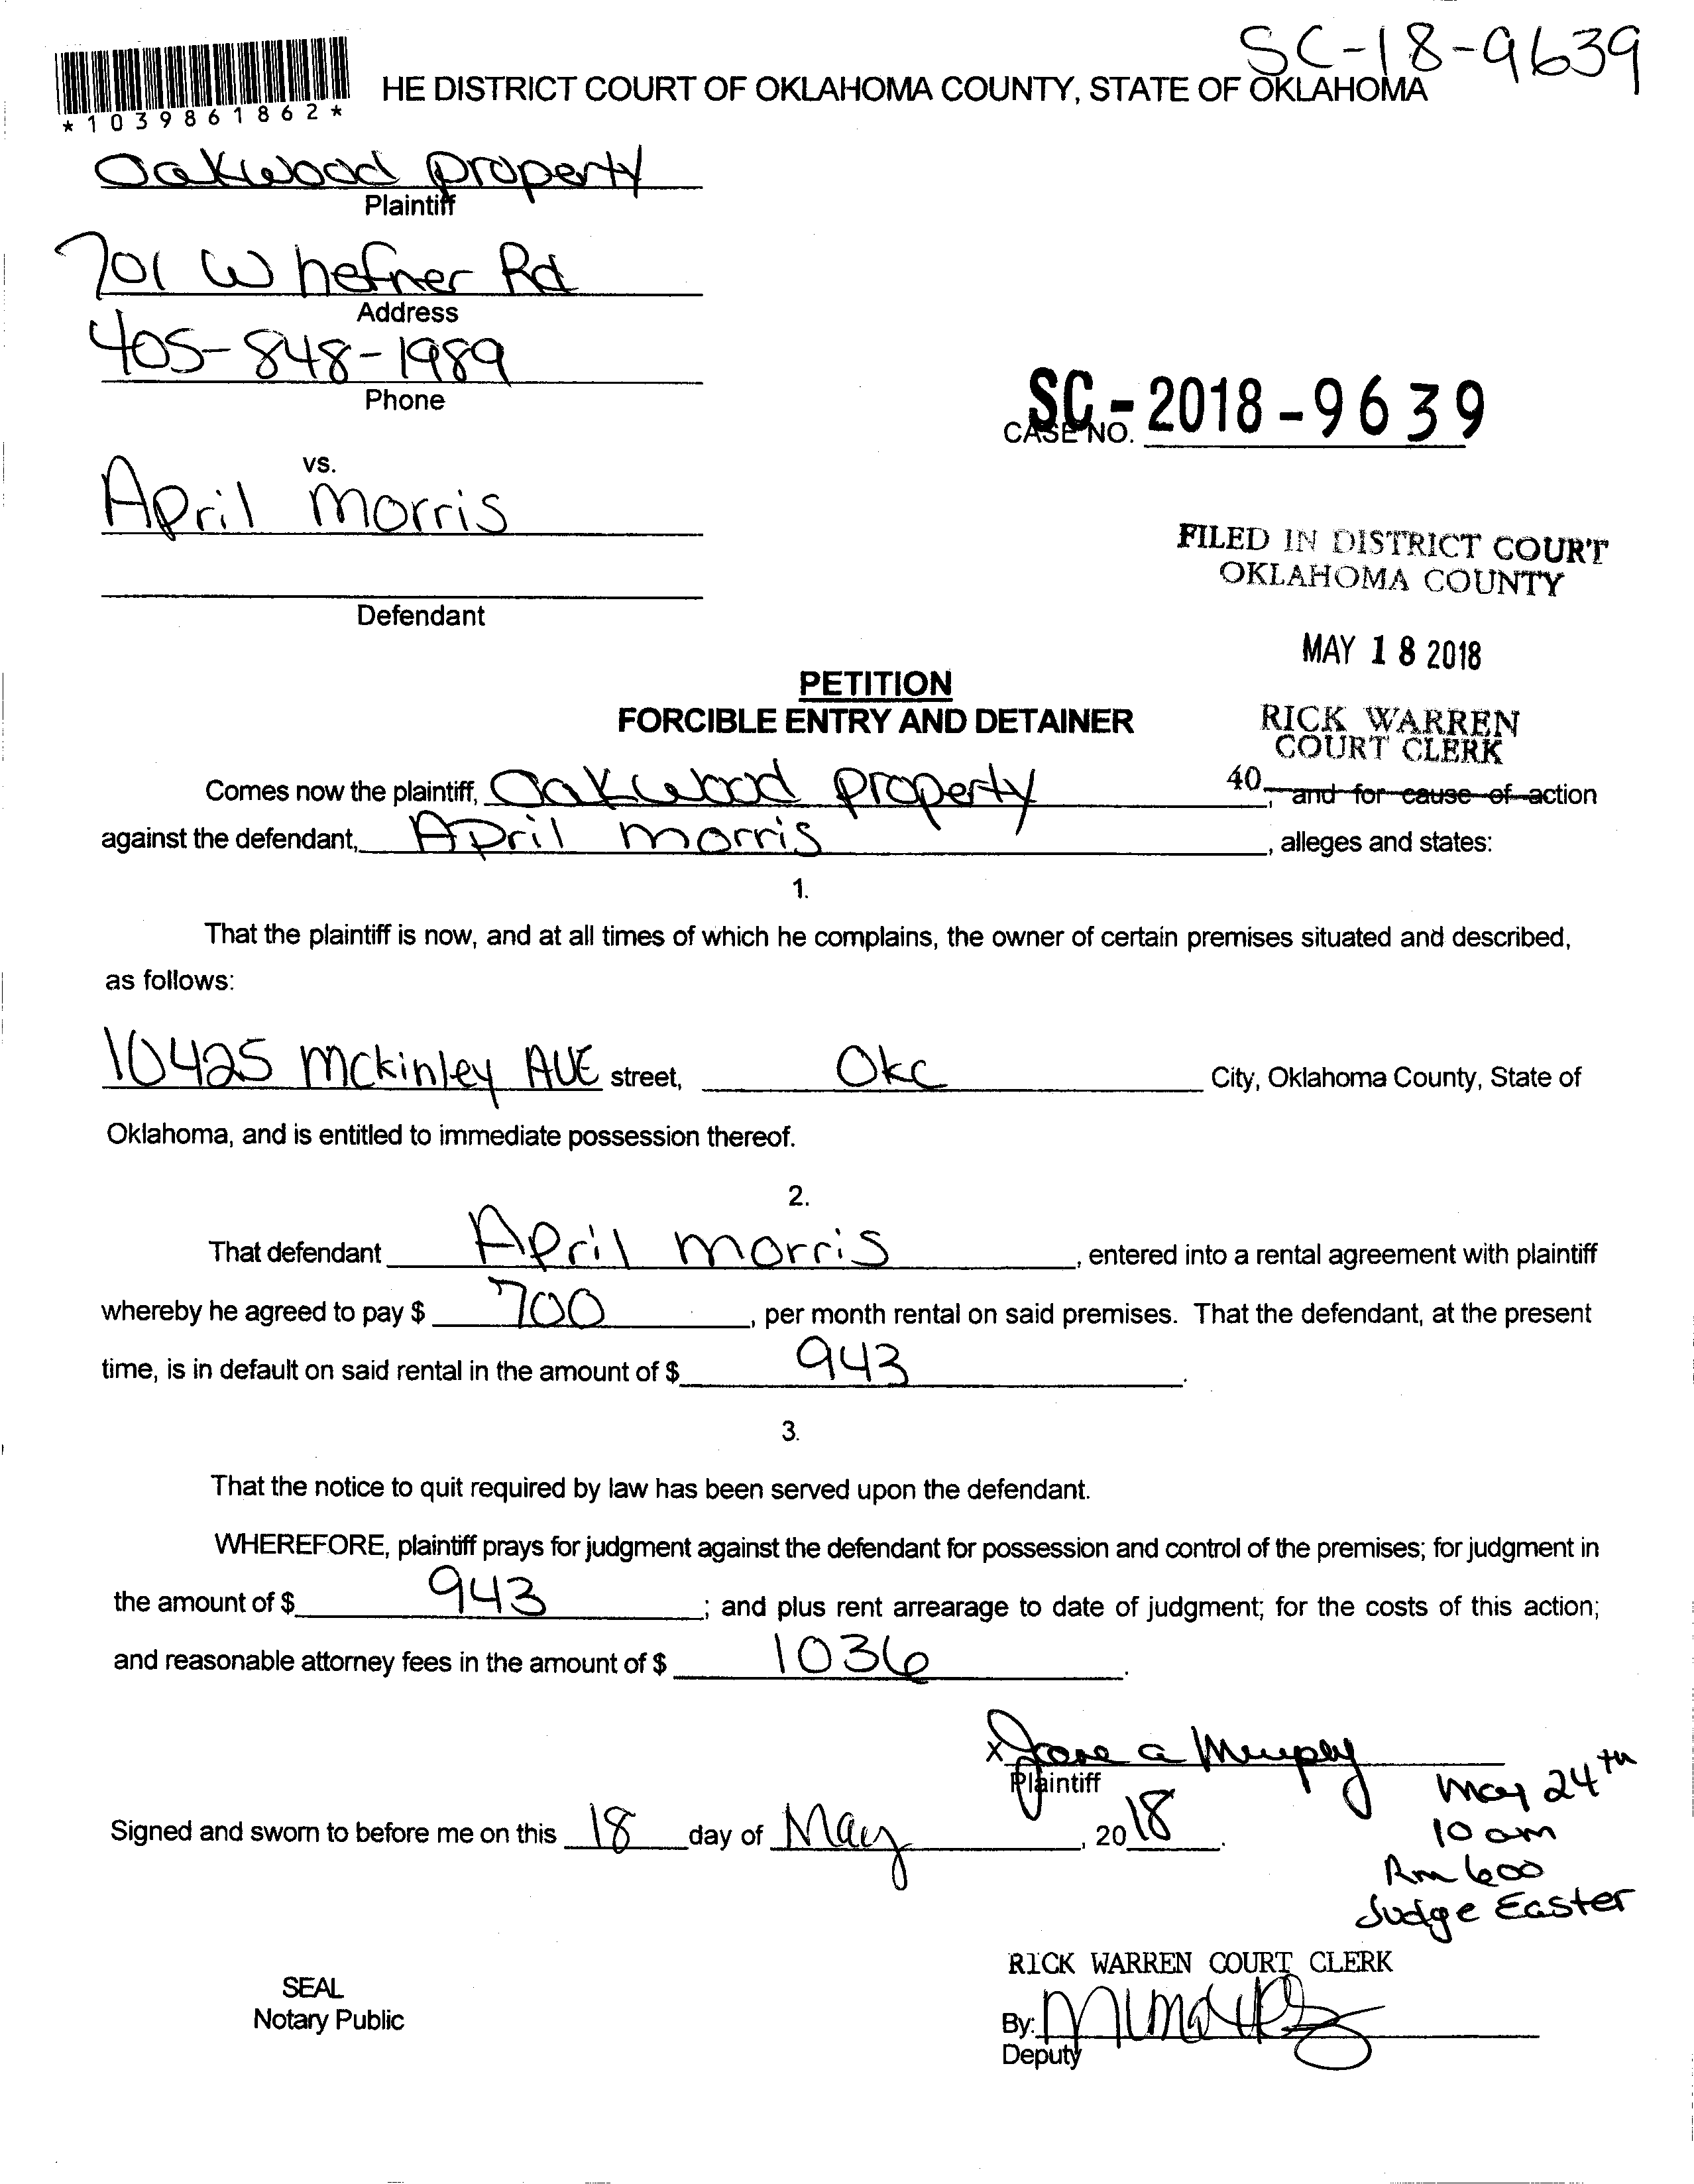 SC-18-9639
*1039861862*
HE DISTRICT COURT OF OKLAHOMA COUNTY, STATE OF OKLAHOMA
Oakwood property
Plaintiff
701 W hefner Rd
Address
405-848-1989
Phone
SC-2018-9639
CASE NO.
vs.
April morris
FILED IN DISTRICT COURT
OKLAHOMA COUNTY
Defendant
MAY 18 2018
PETITION
FORCIBLE ENTRY AND DETAINER
RICK WARREN
COURT CLERK
40
Comes now the plaintiff, Oakwood property, and for cause of action
against the defendant, April morris, alleges and states:
1.
That the plaintiff is now, and at all times of which he complains, the owner of certain premises situated and described,
as follows:
10425 mckinley AVE street, Okc City, Oklahoma County, State of
Oklahoma, and is entitled to immediate possession thereof.
2.
That defendant April morris, entered into a rental agreement with plaintiff
whereby he agreed to pay $ 700, per month rental on said premises. That the defendant, at the present
time, is in default on said rental in the amount of $ 943.
3.
That the notice to quit required by law has been served upon the defendant.
WHEREFORE, plaintiff prays for judgment against the defendant for possession and control of the premises; for judgment in
the amount of $ 943; and plus rent arrearage to date of judgment; for the costs of this action;
and reasonable attorney fees in the amount of $ 1036.
x a Murphy
Plaintiff
may 24th
10 am
Rm 600
Judge Easter
Signed and sworn to before me on this 18 day of May, 2018.
RICK WARREN COURT CLERK
SEAL
Notary Public
By:
Deputy